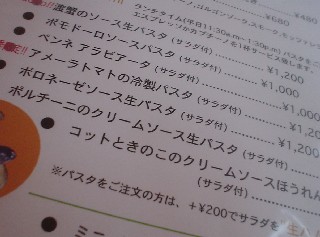 ¥680 ¥480
ランチタイム(平日11:30a.m~1:30p.m)パスタをご
エスプレッソかカプチーノを1杯サービス致します。
渡蟹のソース生パスタ (サラダ付) ¥1,200
ポモドーロソースパスタ (サラダ付) ¥1,000
ペンネ アラビアータ (サラダ付) ¥1,000
アメーラトマトの冷製パスタ (サラダ付) ¥1,200
ボロネーゼソース生パスタ (サラダ付) ¥1,200
ポルチーニのクリームソース生パスタ (サラダ付)
コットときのこのクリームソースほうれん
(サラダ付)
※パスタをご注文の方は、+¥200でサラダを
ミニ